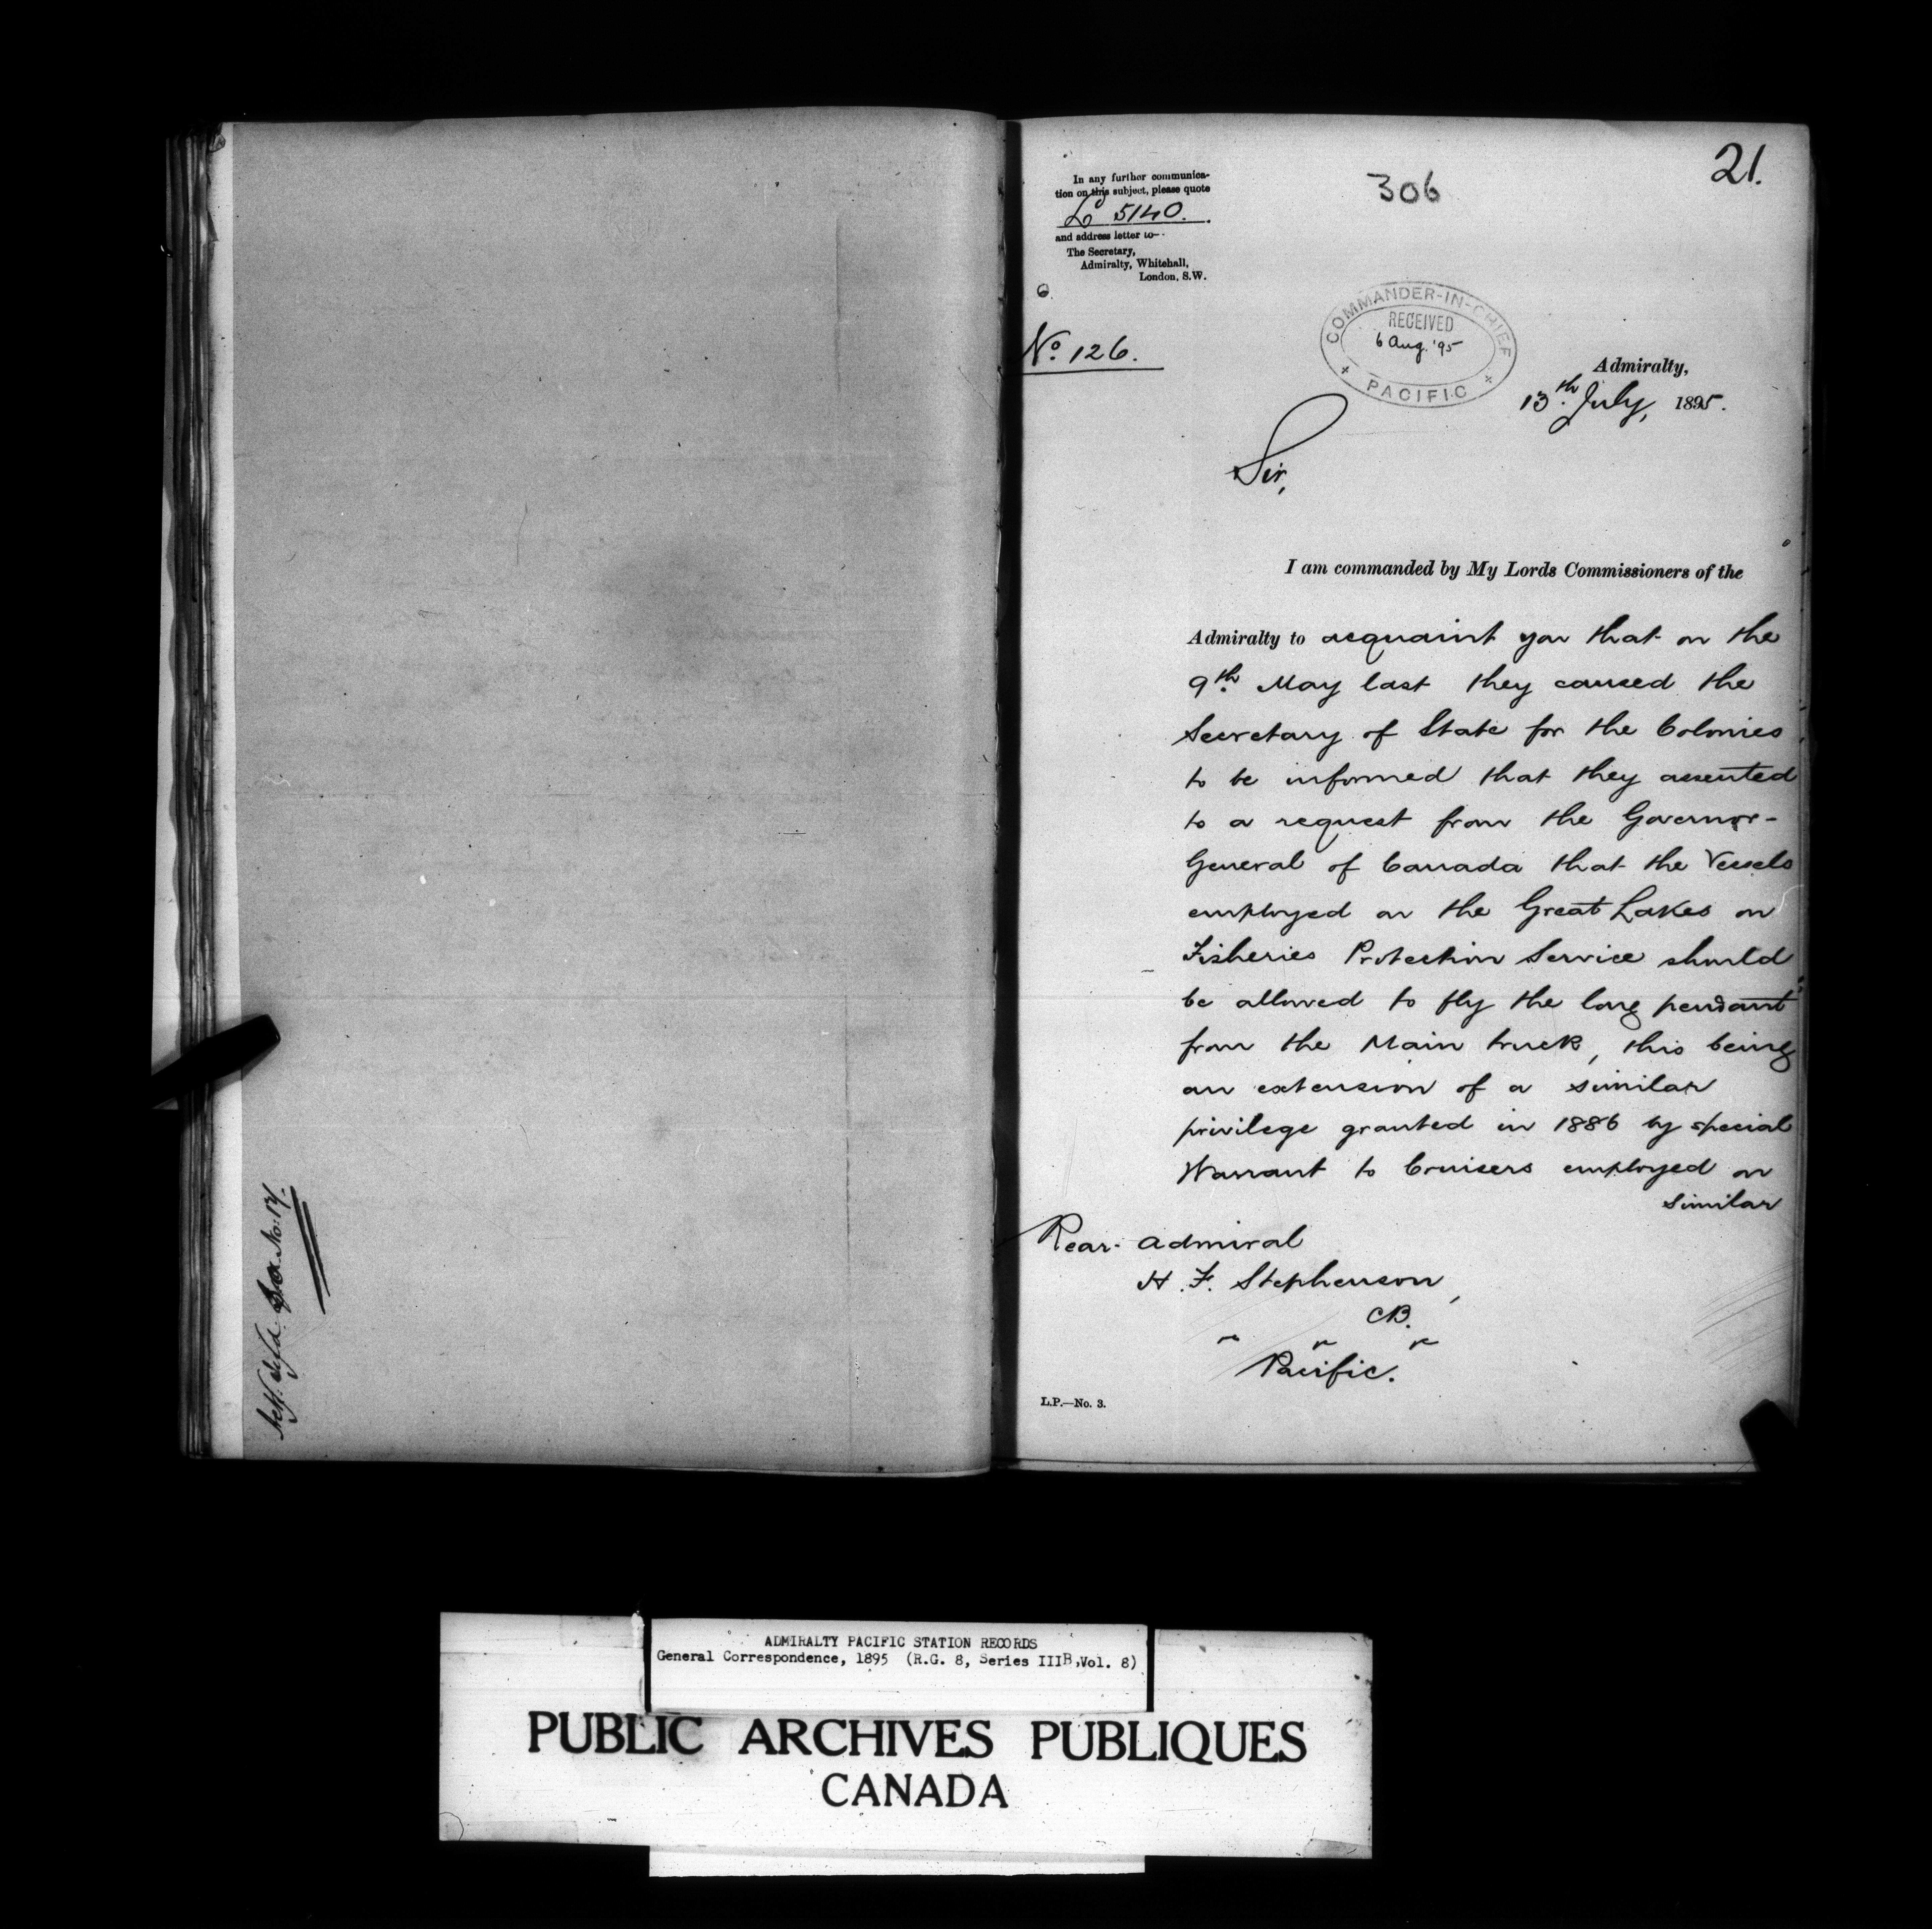 21.
306
In any further communica-
tion on this subject, please quote
L 5140.
and address letter to—
The Secretary,
Admiralty, Whitehall,
London, S.W.
No. 126.
COMMANDER-IN-CHIEF
RECEIVED
6 Aug. '95
PACIFIC
Admiralty,
13th July, 1895.
Sir,
I am commanded by My Lords Commissioners of the
Admiralty to acquaint you that on the
9th May last they caused the
Secretary of State for the Colonies
to be informed that they assented
to a request from the Governor-
General of Canada that the Vessels
employed on the Great Lakes on
Fisheries Protection Service should
be allowed to fly the long pendant
from the Main truck, this being
an extension of a similar
privilege granted in 1886 by special
Warrant to Cruisers employed on
similar
Rear-Admiral
H. F. Stephenson,
CB.
Pacific.
L.P.—No. 3.
No. 17.
ADMIRALTY PACIFIC STATION RECORDS
General Correspondence, 1895 (R.G. 8, Series IIIB, Vol. 8)
PUBLIC ARCHIVES PUBLIQUES
CANADA